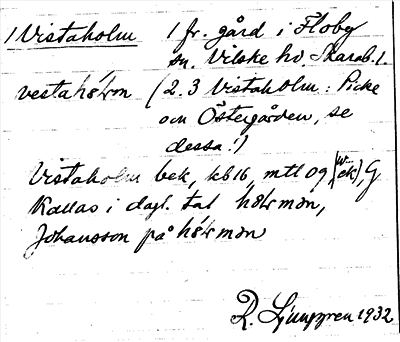 1 Vistaholm 1 fr. gård i Floby
sn. Vilske hd. Skarab. l.
vestahöʹrm (2.3 Vistaholm: Picke
och Östergården, se
dessa!)
Vistaholm bek, kb 16, mtl 09 G
Kallas i dagl. tal
Johansson på
R. Ljunggren 1932